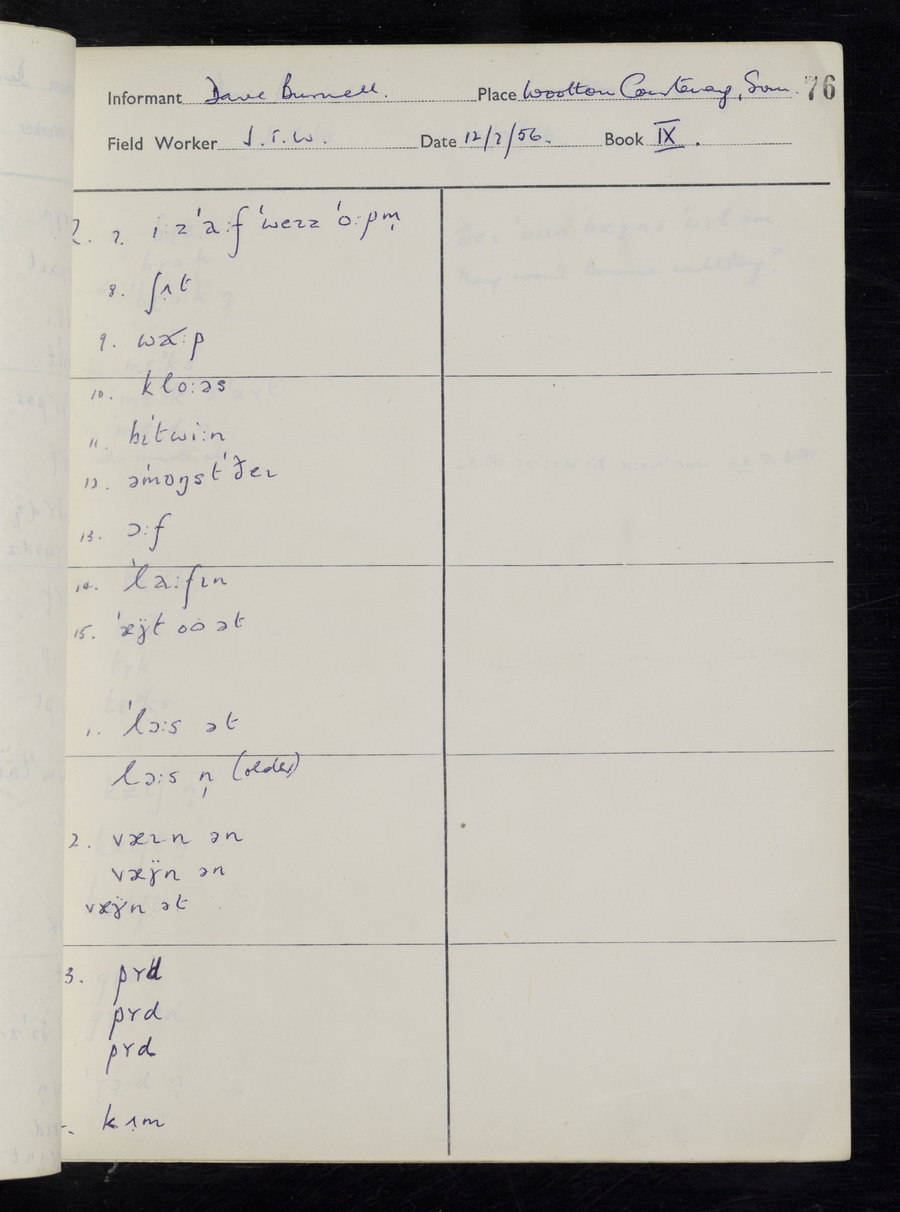 Informant Dave Burnell. Place Wootton Courtenay, Som. 76
Field Worker J.T.W. Date 12/2/56. Book IX.
7. iːz ˈaːf ˈweɪz ˈoːpm̩
8. ʃɪt
9. wæːp
10. kloːəs
11. bɪˈtwiːn
12. əˈmɒŋst ˈðeɪ
13. ɔːf
14. ˈlaːfɪn
ˈlɔːs ət
lɔːs n̩ (older)
2. væɪn ən
væÿn ən
væÿn ət
3. pʏd
pʏd
pʏd
kɪm